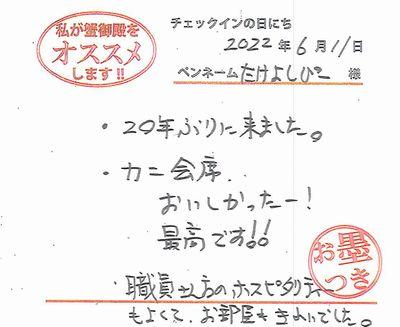 私が蟹御殿を
オススメ
します!!
チェックインの日にち
2022年6月11日
ペンネーム たけよしひこ 様
・20年ぶりに来ました。
・カニ会席、
おいしかったー!
最高です!!
お墨
つき
・職員さん方のホスピタリティー
もよくて、お部屋もきれいでした。